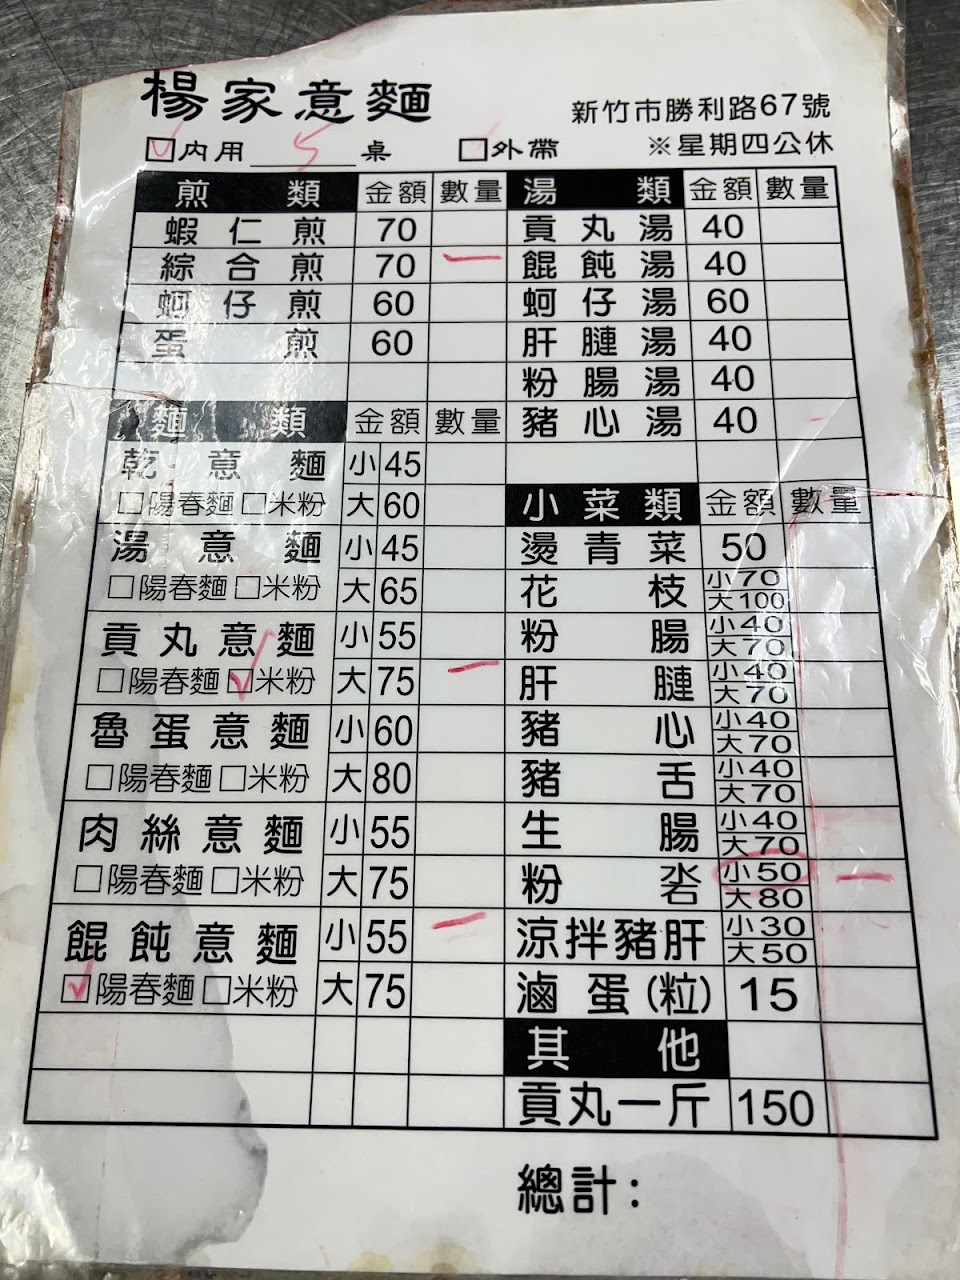 楊家意麵
新竹市勝利路67號
☑內用 5 桌 □外帶 ※星期四公休
煎類 金額 數量
蝦仁煎 70
綜合煎 70 一
蚵仔煎 60
蛋煎 60
麵類 金額 數量
乾意麵 小 45
□陽春麵□米粉 大 60
湯意麵 小 45
□陽春麵□米粉 大 65
貢丸意麵 小 55
□陽春麵☑米粉 大 75 一
魯蛋意麵 小 60
□陽春麵□米粉 大 80
肉絲意麵 小 55
□陽春麵□米粉 大 75
餛飩意麵 小 55 一
☑陽春麵□米粉 大 75
湯類 金額 數量
貢丸湯 40
餛飩湯 40
蚵仔湯 60
肝膥湯 40
粉腸湯 40
豬心湯 40
小菜類 金額 數量
燙青菜 50
花枝 小70
大100
粉腸 小40
大70
肝膥 小40
大70
豬心 小40
大70
豬舌 小40
大70
生腸 小40
大70
粉沯 小50 一
大80
涼拌豬肝 小30
大50
滷蛋(粒) 15
其他
貢丸一斤 150
總計: